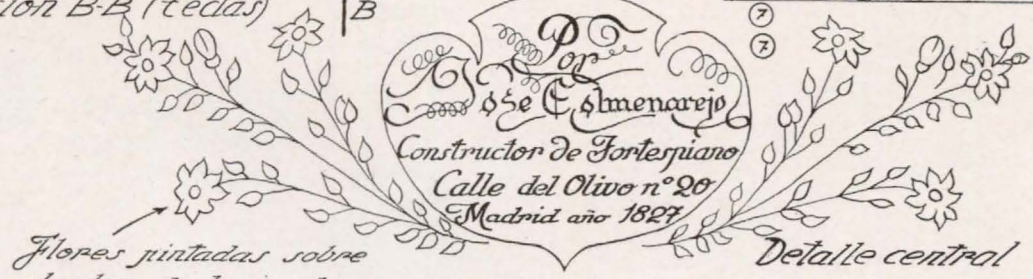 B-B (teclas)
B
7
7
Por
Jose Colmenarejo
Constructor de Fortespiano
Calle del Olivo nº 20
Madrid año 1827
Flores pintadas sobre
Detalle central